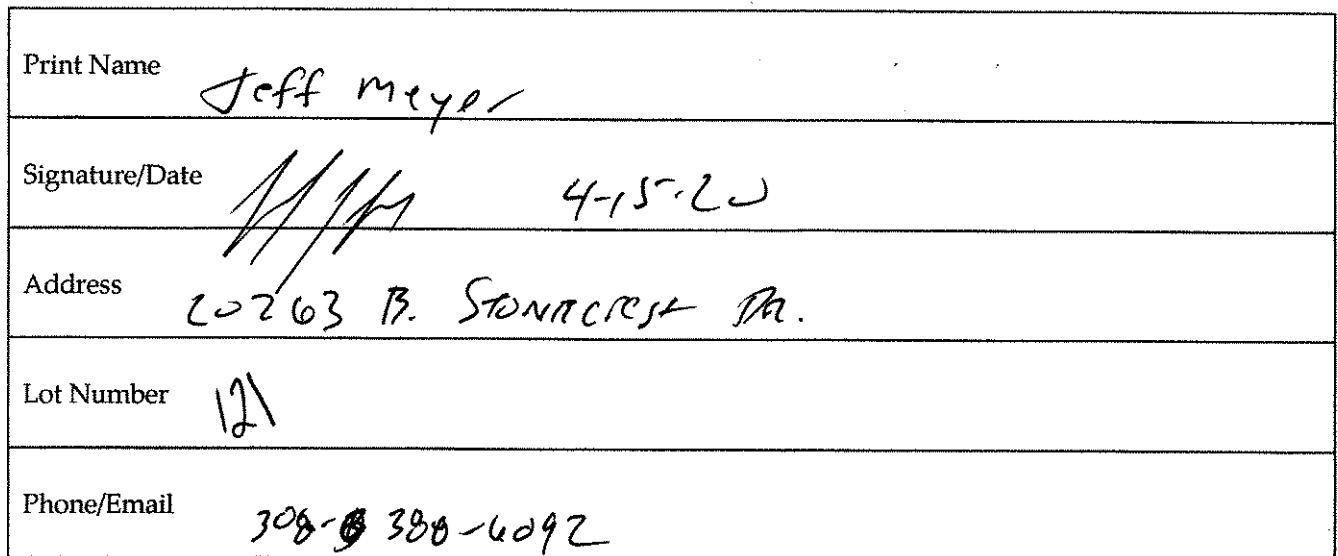 Print Name Jeff Meyer
Signature/Date 4-15-20
Address 20263 B. Stonecrest Dr.
Lot Number 121
Phone/Email 308-388-6092